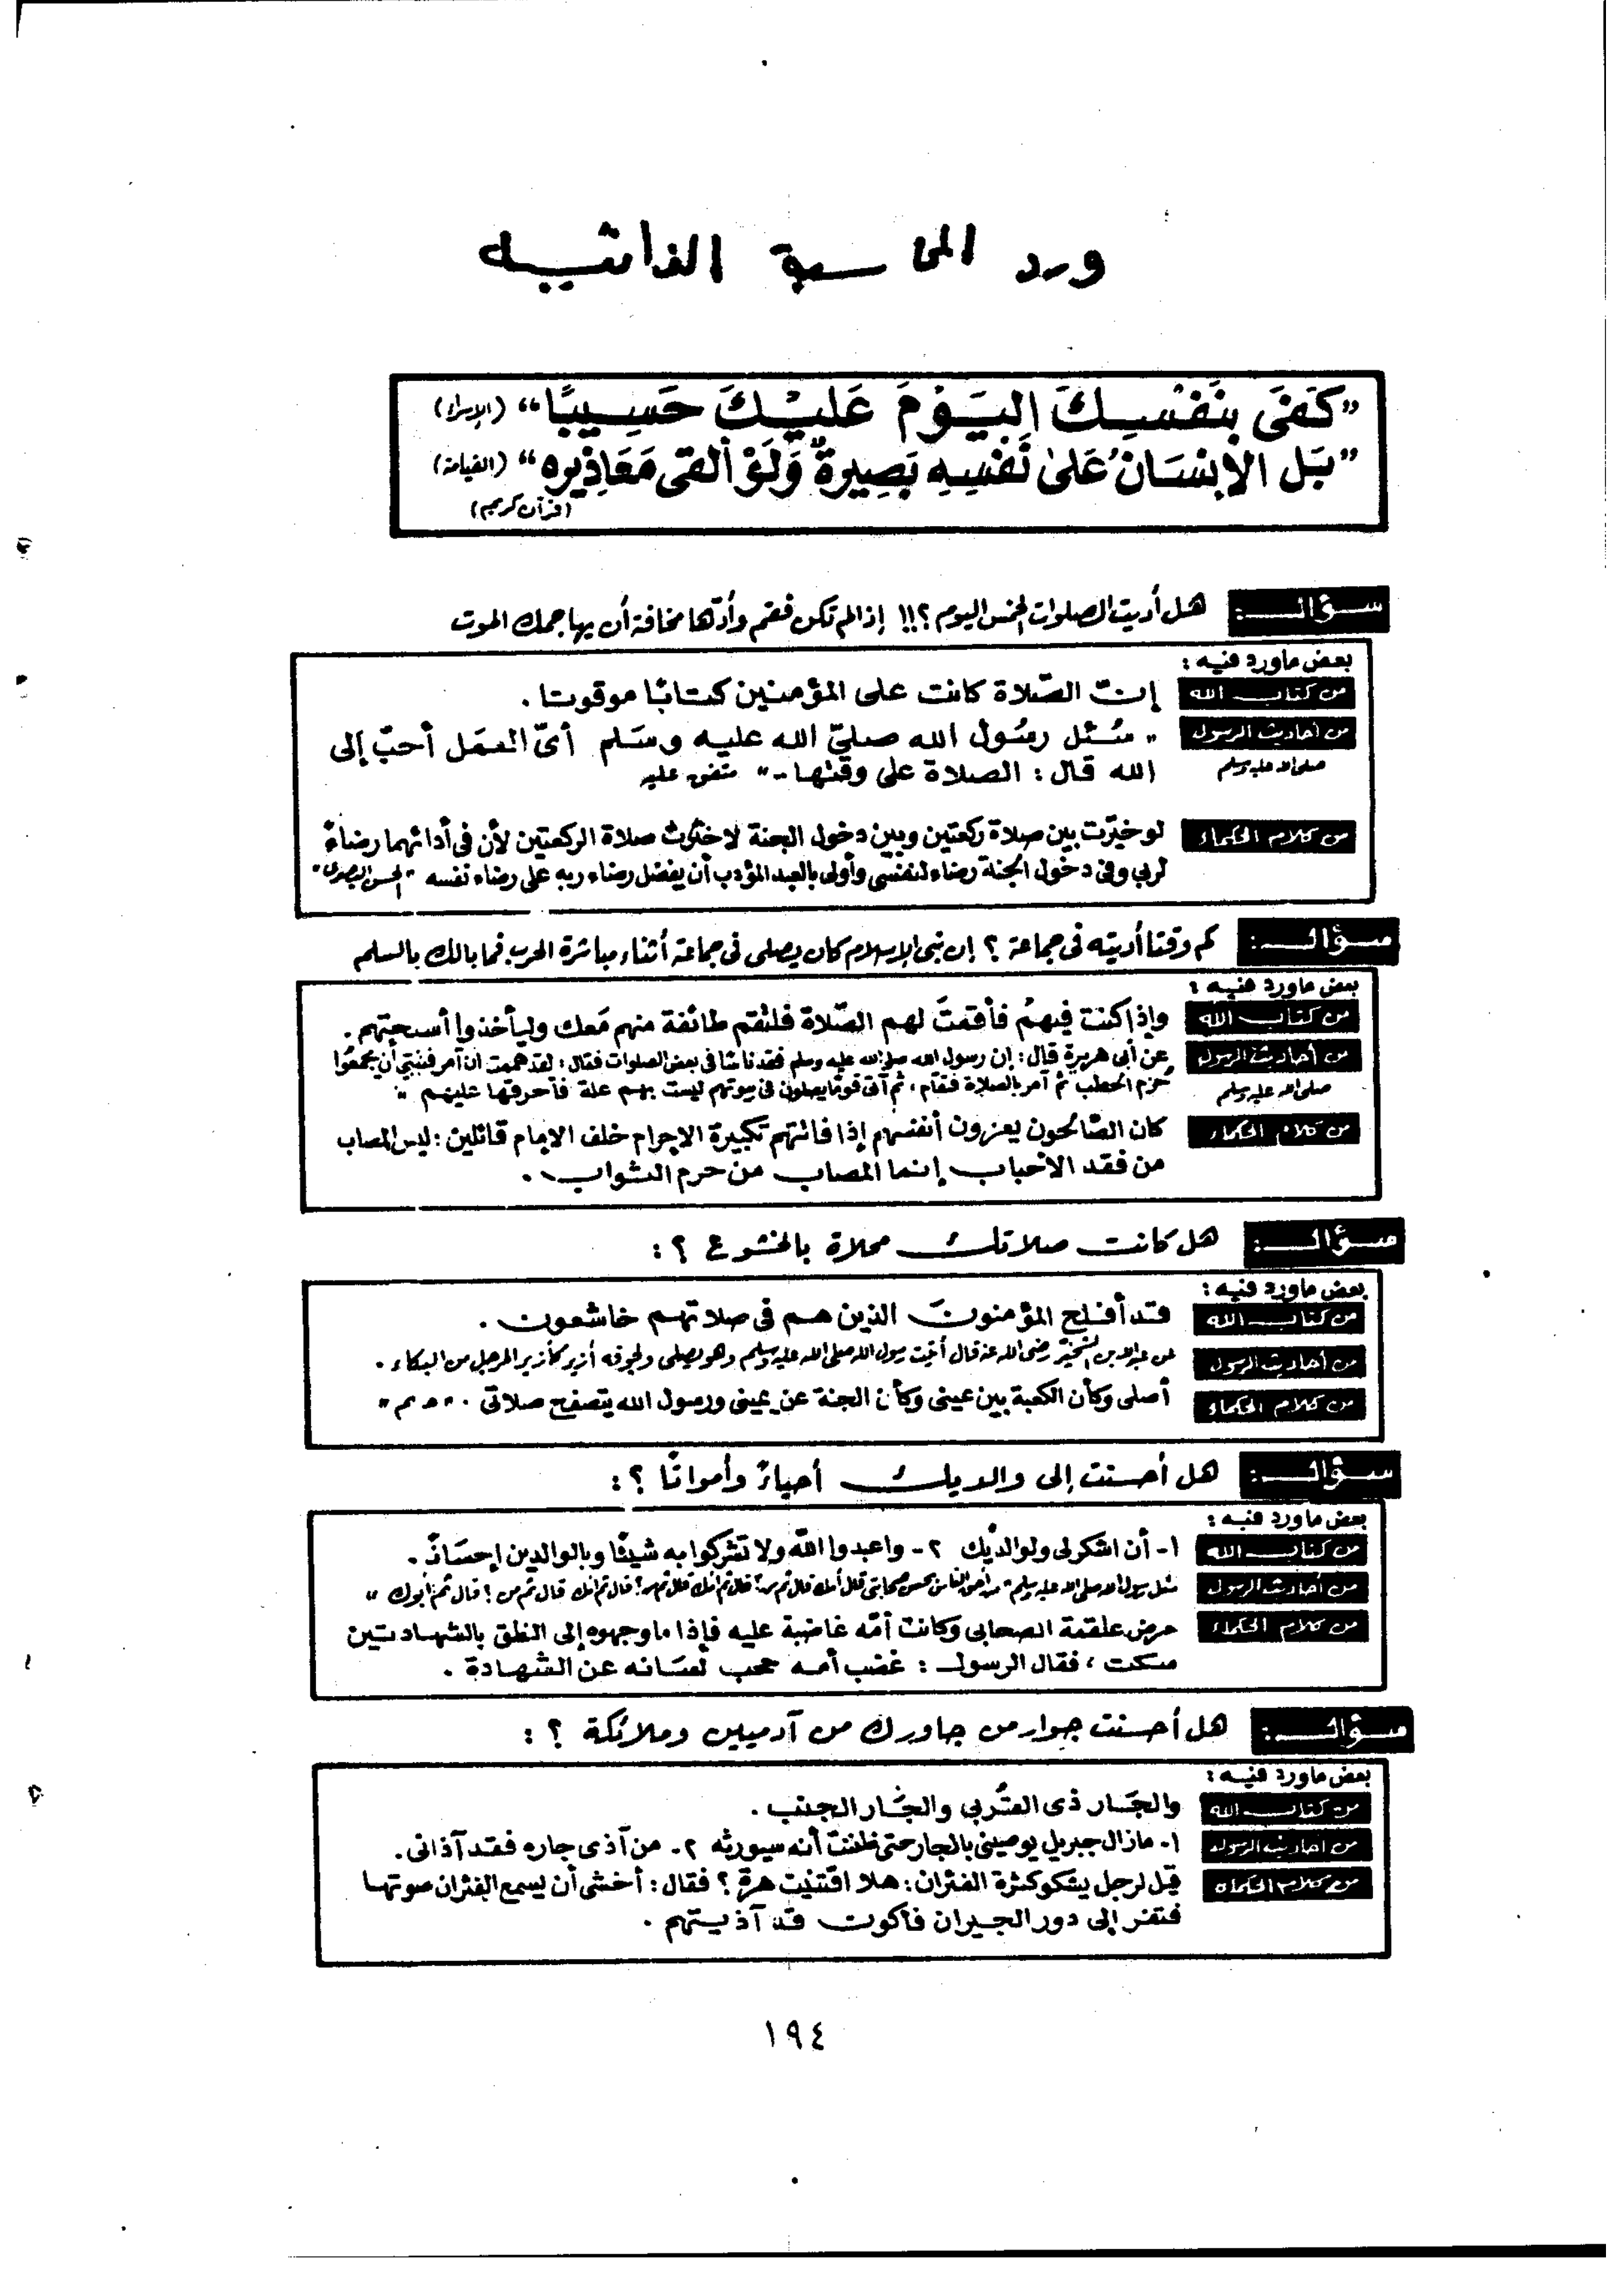 ورد المحاسبة الذاتيه
”كَفَىَ بِنَفْسِكَ اليَوْمَ عَليْكَ حَسِيبًا“ (الإسراء)
”بَل الإنسَانُ عَلىٰ نَفْسِهِ بَصِيرةٌ وَلَوْ ألقى مَعَاذِيره“ (القيامة)
(قرآن كريم)
سؤال: هل أديت الصلوات الخمس اليوم؟!! إذا لم تكن فقم وأدّها مخافة أن يهاجمك الموت
بعض ماورد فيه:
من كتاب الله إنّ الصّلاة كانت على المؤمنين كتابًا موقوتا.
من أحاديث الرسول " سُئل رسُول الله صلىّ الله عليه وسَلم أىّ العمَل أحبّ إلى
صلى الله عليه وسلم الله قال: الصلاة على وقتها.." متفق عليه
من كلام الحكماء لو خيّرت بين صلاة ركعتين وبين دخول الجنة لاخترت صلاة الركعتين لأن فى أدائهما رضاءً
لربي وفى دخول الجنة رضاء لنفسى وأولى بالعبد المؤدب أن يفضل رضاء ربه على رضاء نفسه "الحسن البصرى"
سؤال: كم وقتا أديته فى جماعة؟ إن نبى الإسلام كان يصلى فى جماعة أثناء مباشرة الحرب فما بالك بالسلم
بعض ماورد فيه:
من كتاب الله وإذا كنت فيهمْ فأقمتَ لهم الصّلاة فلتقم طائفة منهم مَعك وليأخذوا أسلحتهم.
من أحاديث الرسول عن أبى هريرة قال: إن رسول الله صلى الله عليه وسلم فقد ناسًا فى بعض الصلوات فقال: لقد هممت أن آمر فتيتي أن يجمعُوا
صلى الله عليه وسلم حُزم الحطب ثم آمر بالصلاة فتقام، ثم آتى قومًا يصلون فى بيوتهم ليست بهم علة فأحرقها عليهم "
من كلام الحكماء كان الصّالحون يعزون أنفسهم إذا فاتتهم تكبيرة الإحرام خلف الإمام قائلين: ليس المصاب
من فقد الأحباب إنما المصاب من حرم الثواب.
سؤال: هل كانت صلاتك محلاة بالخشوع؟:
بعض ماورد فيه:
من كتاب الله قد أفلح المؤمنونَ الذين هم فى صلاتهم خاشعون.
من أحاديث الرسول عن عبدالله بن الشخير رضى الله عنه قال أتيت رسول الله صلى الله عليه وسلم وهو يصلى ولجوفه أزيز كأزيز المرجل من البكاء.
من كلام الحكماء أصلى وكأن الكعبة بين عينى وكأن الجنة عن يمينى ورسول الله يتصفح صلاتى.
سؤال: هل أحسنت إلى والديك أحياءً وأمواتًا؟:
بعض ماورد فيه:
من كتاب الله ١- أن اشكر لى ولوالدْيك ٢- واعبدوا اللّه ولا تشركوا به شيئًا وبالوالدين إحسَانًا.
من أحاديث الرسول سئل رسول الله صلى الله عليه وسلم "من أحق الناس بحسن صحابتى قال أمك قال ثم من؟ قال ثم أمك قال ثم من؟ قال ثم أمك قال ثم من؟ قال ثم أبوك"
من كلام الحكماء مرض علقمة الصحابى وكانت أمّه غاضبة عليه فإذا ما وجهوه إلى النطق بالشهادتين
سكت، فقال الرسول: غضب أمه حجب لسَانه عن الشهادة.
سؤال: هل أحسنت جوار من جاورك من آدميين وملائكة؟:
بعض ماورد فيه:
من كتاب الله والجَار ذى القُربى والجَار الجنب.
من أحاديث الرسول ١- مازال جبريل يوصينى بالجار حتى ظننت أنه سيورثه ٢- من آذى جاره فقد آذانى.
من كلام الحكماء قيل لرجل يشكو كثرة الفئران: هلا اقتنيْت هرة؟ فقال: أخشى أن يسمع الفئران صوتها
فتفر إلى دور الجيران فأكون قد آذيتهم.
١٩٤